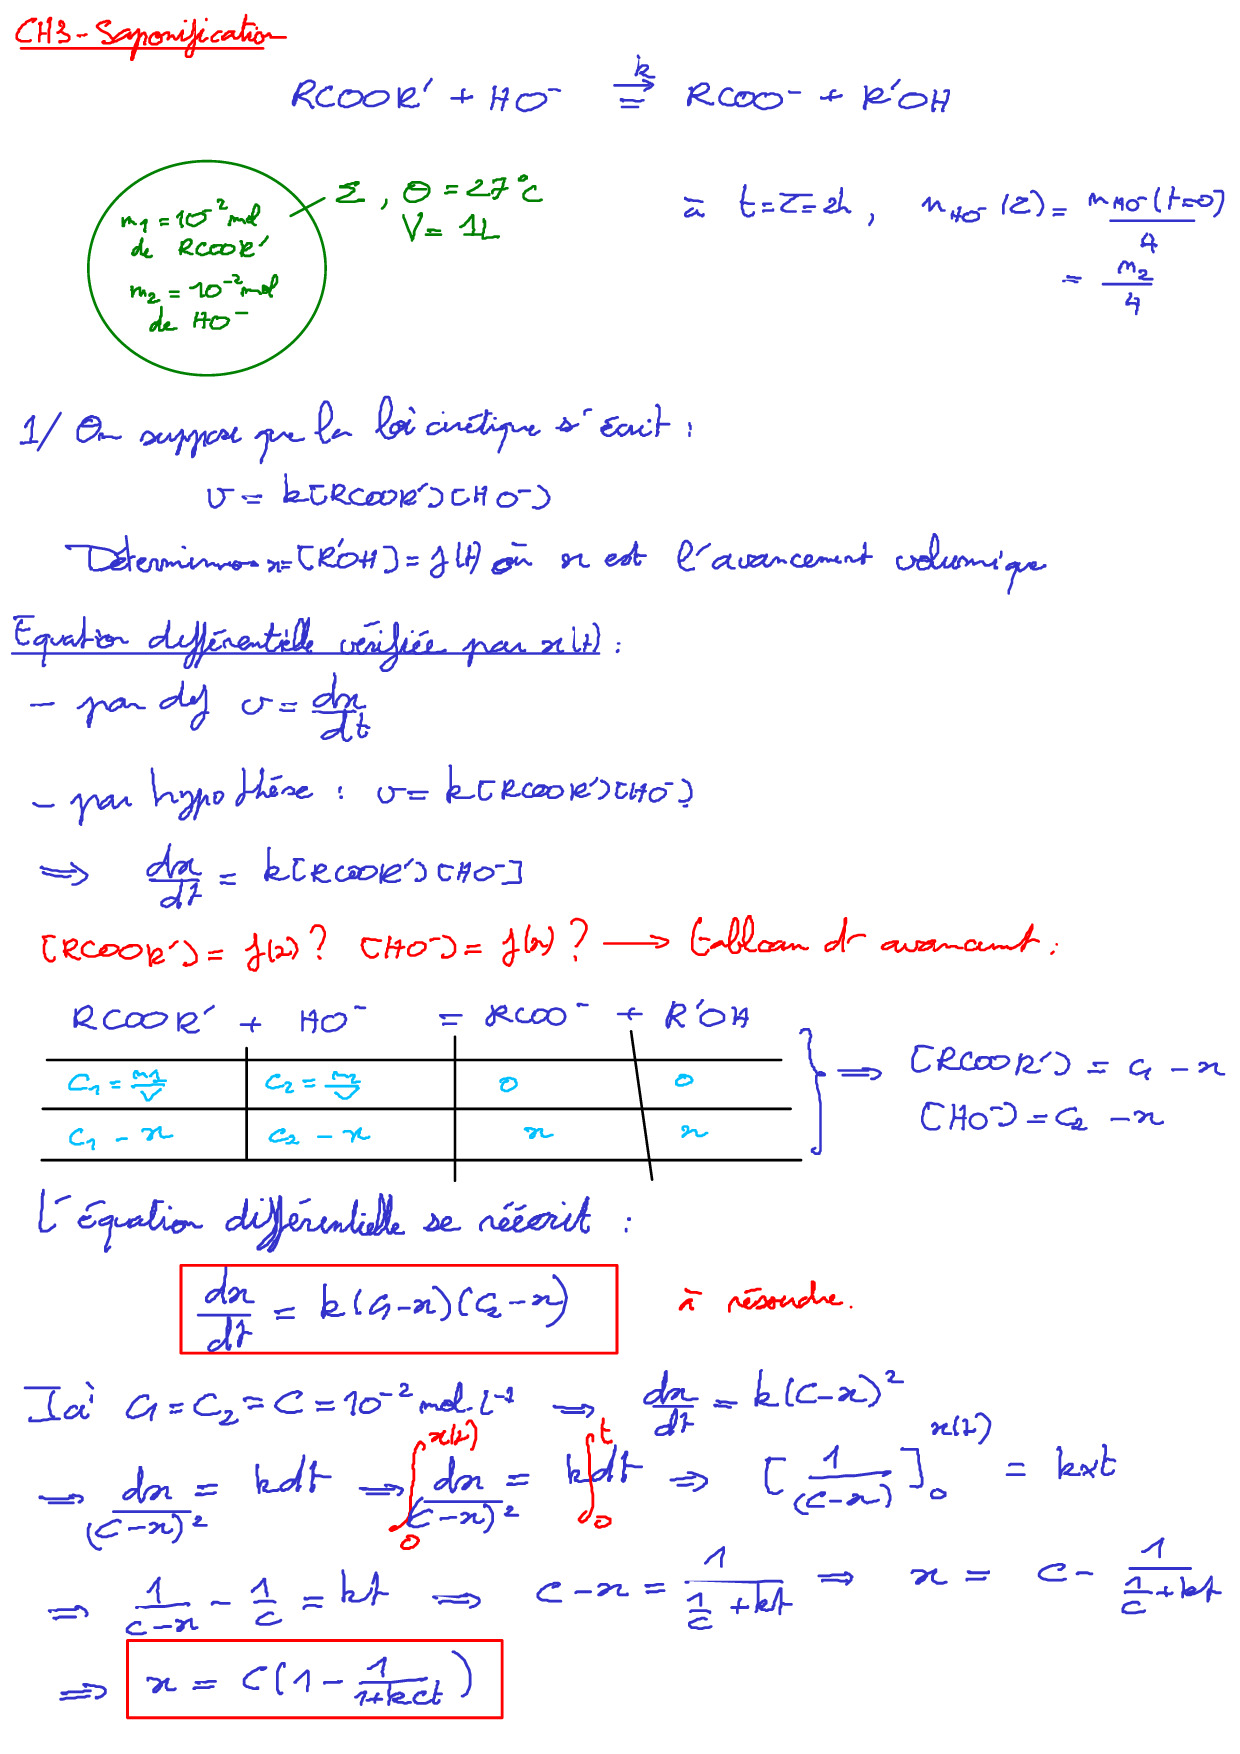 CH3 - Saponification
RCOOR' + HO⁻ =(k→) RCOO⁻ + R'OH
n₁ = 10⁻² mol
de RCOOR'
n₂ = 10⁻² mol
de HO⁻
Σ, θ = 27°C
V = 1L
à t = τ = 2h, n_HO⁻(τ) = n_HO⁻(t=0)/4
= n₂/4
1/ On suppose que la loi cinétique s'écrit :
v = k[RCOOR'][HO⁻]
Déterminons x = [R'OH] = f(t) où x est l'avancement volumique
Equation différentielle vérifiée par x(t) :
- par def v = dx/dt
- par hypothèse : v = k[RCOOR'][HO⁻]
⇒ dx/dt = k[RCOOR'][HO⁻]
[RCOOR'] = f(x) ? [HO⁻] = f(x) ? → tableau d'avancement :
RCOOR' + HO⁻ = RCOO⁻ + R'OH
C₁ = n₁/V C₂ = n₂/V 0 0
C₁ - x C₂ - x x x
⇒ [RCOOR'] = C₁ - x
[HO⁻] = C₂ - x
L'équation différentielle se réécrit :
dx/dt = k(C₁-x)(C₂-x) à résoudre.
Ici C₁ = C₂ = C = 10⁻² mol.L⁻¹ ⇒ dx/dt = k(C-x)²
⇒ dx/(C-x)² = kdt ⇒ ∫₀^x(t) dx/(C-x)² = ∫₀^t kdt ⇒ [1/(C-x)]₀^x(t) = k×t
⇒ 1/(C-x) - 1/C = kt ⇒ C-x = 1/(1/C + kt) ⇒ x = C - 1/(1/C + kt)
⇒ x = C(1 - 1/(1+kCt))